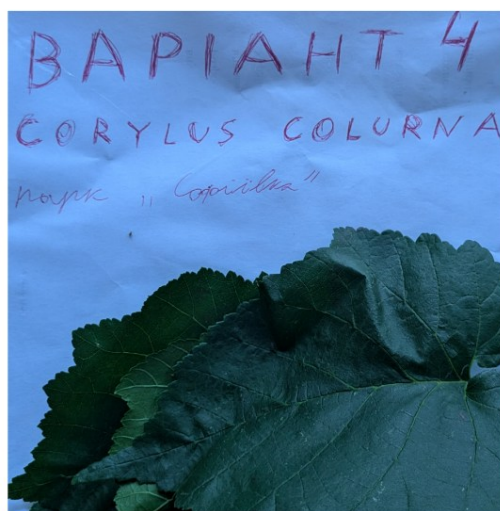 ВАРІАНТ 4
CORYLUS COLURNA
парк „Софіївка”